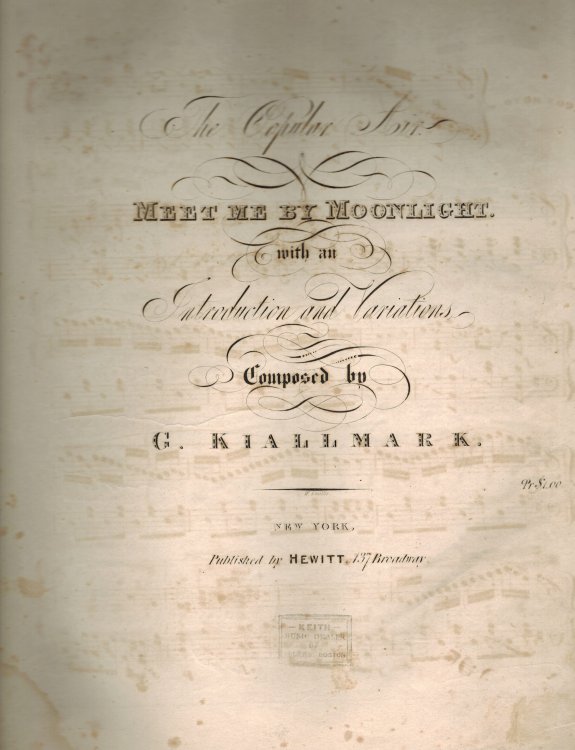 The Popular Air
MEET ME BY MOONLIGHT.
with an
Introduction and Variations
Composed by
G. KIALLMARK.
Pr $1.00
NEW YORK,
Published by HEWITT, 137 Broadway
KEITH
MUSIC DEALER
BOSTON